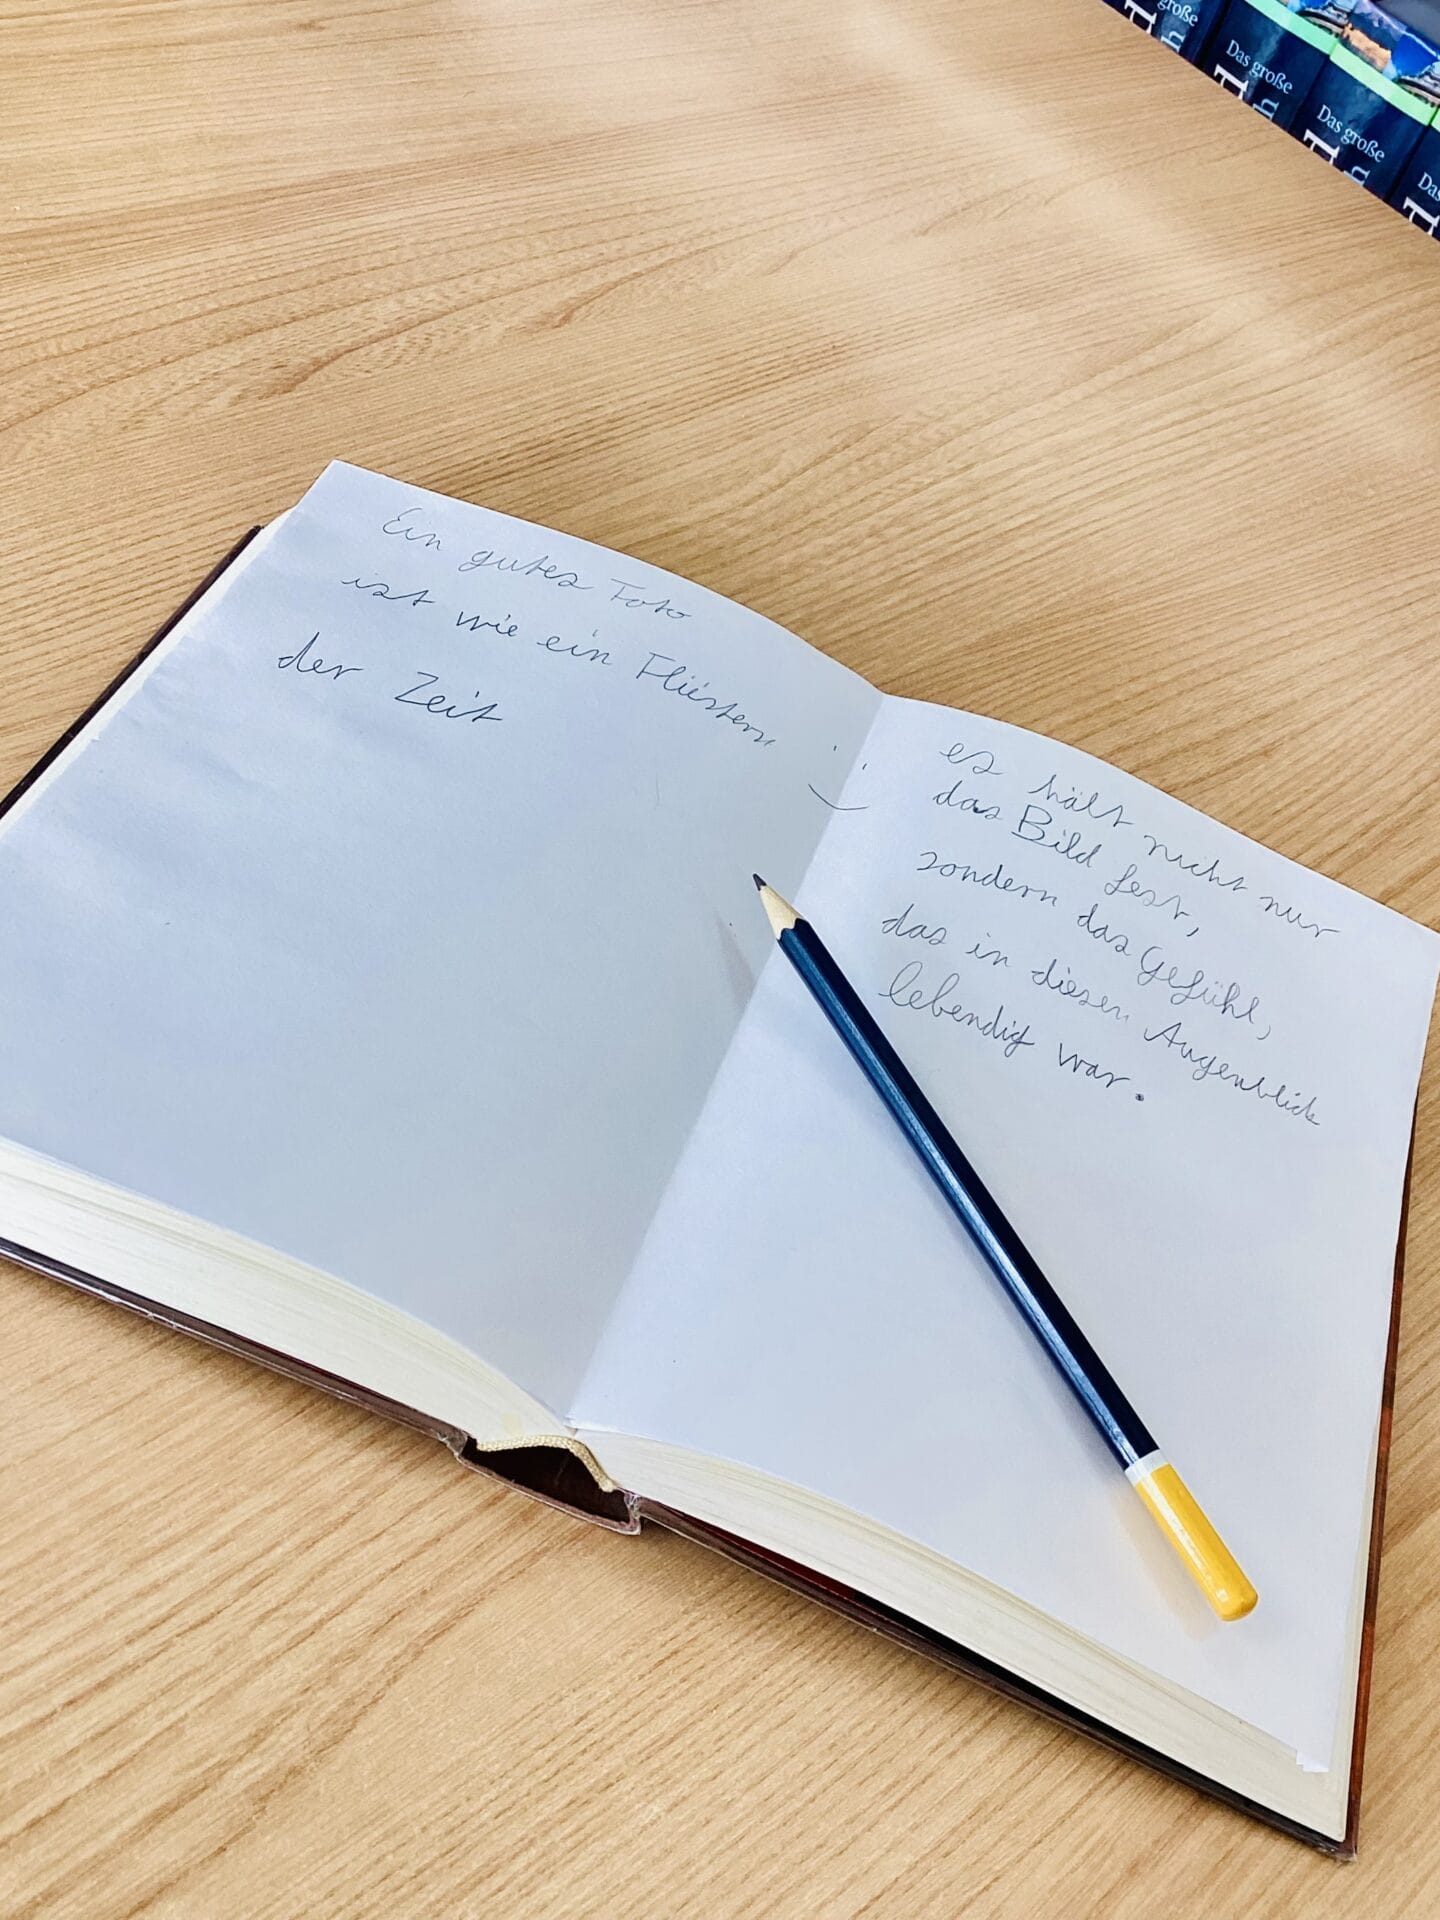 Ein gutes Foto
ist wie ein Flüstern
der Zeit
es hält nicht nur
das Bild fest,
sondern das Gefühl,
das in diesen Augenblick
lebendig war.
große
Das große
Das große
Das